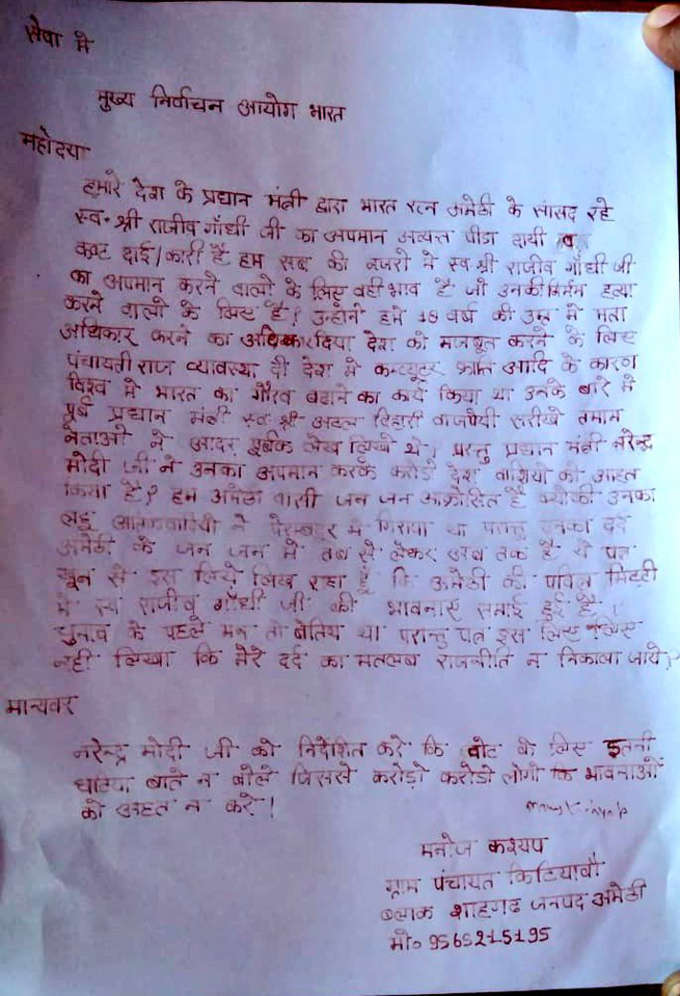 सेवा मे
मुख्य निर्वाचन आयोग भारत
महोदया
हमारे देश के प्रधान मंत्री द्वारा भारत रत्न अमेठी के सांसद रहे
स्व॰ श्री राजीव गाँधी जी का अपमान अत्यन्त पीडा दायी व
कष्ट दाई/कारी है हम सब की नजरो मे स्व श्री राजीव गाँधी जी
का अपमान करने वालो के लिए वही भाव है जो उनकी निर्मम हत्या
करने वालो के लिए है! उन्होनी हमे 18 वर्ष की उम्र मे मता
अधिकार करने का अधिकार दिया देश को मजबूत करने के लिए
पंचायती राज व्यावस्था दी देश मे कम्प्यूटर क्रान्ति आदि के कारण
विश्व मे भारत का गौरव बढाने का कार्य किया था उनके बारे मे
पूर्व प्रधान मंत्री स्व श्री अटल बिहारी वाजपेयी सरीखे तमाम
नेताओ ने आदर पूर्वक लेख लिखे थे! परन्तु प्रधान मंत्री नरेन्द्र
मोदी जी ने उनका अपमान करके करोडो देश वाशियो को आहत
किया है! हम अमेठी वासी जन जन आक्रोसित है क्योकी उनका
लहू आतंकवादियो ने पेरम्बदूर मे गिराया था परन्तु उनका दर्द
अमेठी के जन जन मे तब से लेकर अब तक है ये पत्र
खून से इस लिये लिख रहा हूँ कि अमेठी की पवित्र मिट्टी
मे स्व राजीव गाँधी जी की भावनाए समाई हुई है!
चुनाव के पहले मन तो था परान्तु पत्र इस लिए
नही लिखा कि मेरे दर्द का मतलब राजनीति न निकाला जाये!
मान्यवर
नरेन्द्र मोदी जी को निर्देशित करे कि वोट के लिए इतनी
घटिया बाते न बोले जिससे करोडो करोडो लोगो कि भावनाओं
को आहत न करे!
मनोज कश्यप
ग्राम पंचायत किटियावाँ
ब्लाक शाहगढ जनपद अमेठी
मो॰ 9565215195